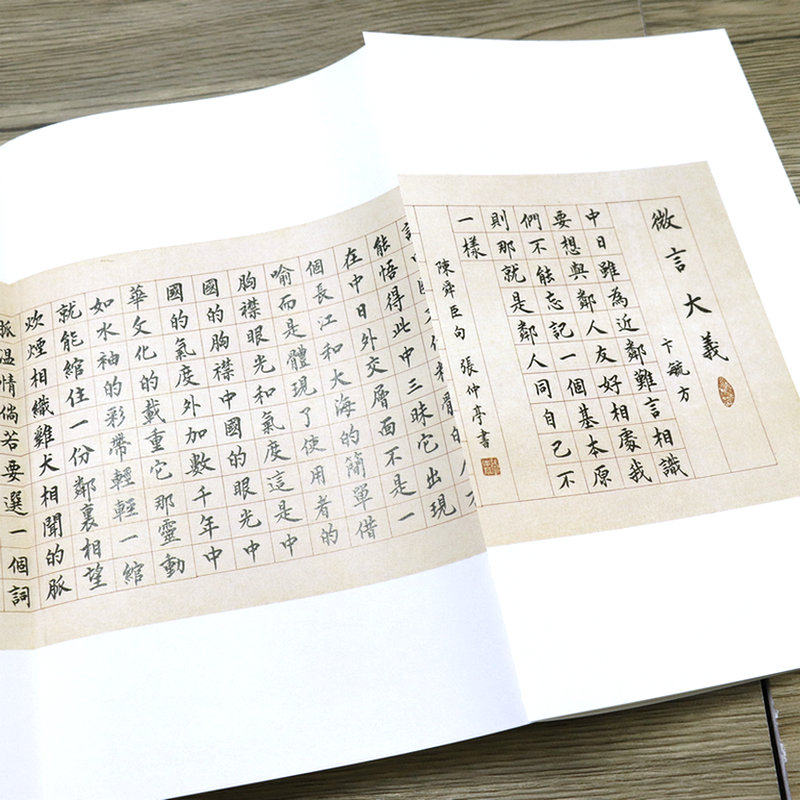 微言大義
卞毓方
中日雖為近鄰難言相識
要想與鄰人友好相處我
們不能忘記一個基本原
則那就是鄰人同自己不
一樣
陳舜臣句 張仲亭書
能悟得此中三昧它出現
在中日外交層面不是一
個長江和大海的簡單借
喻而是體現了使用者的
胸襟眼光和氣度這是中
國的胸襟中國的眼光中
國的氣度外加數千年中
華文化的載重它那靈動
如水袖的彩帶輕輕一綰
就能綰住一份鄰裏相望
炊煙相織雞犬相聞的脈
脈溫情倘若要選一個詞